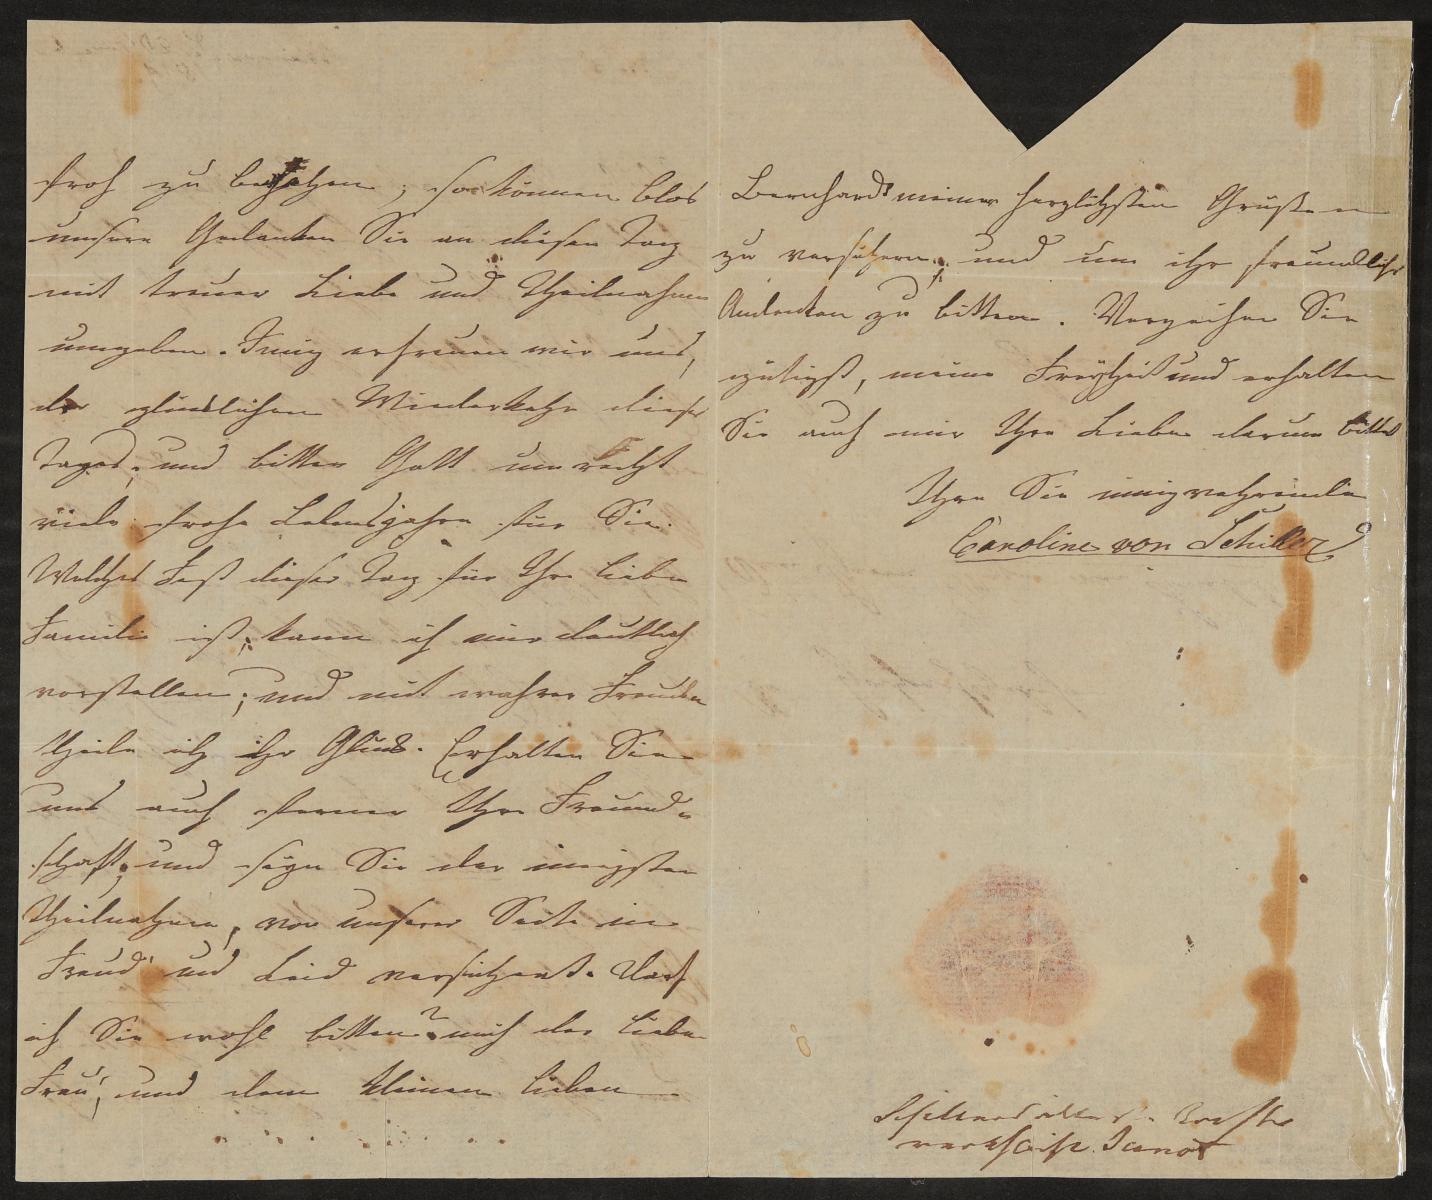 froh zu besetzen, so können blos
unsere Gedanken Sie an diesen Tag
mit treuer Liebe und Theilnahme
umgeben. Innig erfreuen wir uns,
der glücklichen Wiederkehr dieses
Tages, und bitten Gott um recht
viele frohe Lebensjahre für Sie.
Welches Fest dieser Tag für Ihre liebe
Familie ist, kann ich mir deutlich
vorstellen; und mit wahrer Freude
theile ich ihr Glück. Erhalten Sie
uns auch ferner Ihre Freund-
schaft, und seyn Sie der innigsten
Theilnahme, von unserer Seite in
Freud' und Leid versichert. Darf
ich Sie wohl bitten? mich der lieben
Frau, und dem kleinen lieben
Bernhard meiner herzlichsten Grüße
zu versichern, und um ihr freundliches
Andenken zu bitten. Verzeihen Sie
gütigst, meine Freyheit und erhalten
Sie auch mir Ihre Liebe darum bittet
Ihre Sie innig verehrende
Caroline von Schiller
Schillers älteste Tochter
verehel. Junot